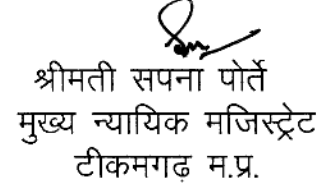 श्रीमती सपना पोर्ते
मुख्य न्यायिक मजिस्ट्रेट
टीकमगढ़ म.प्र.